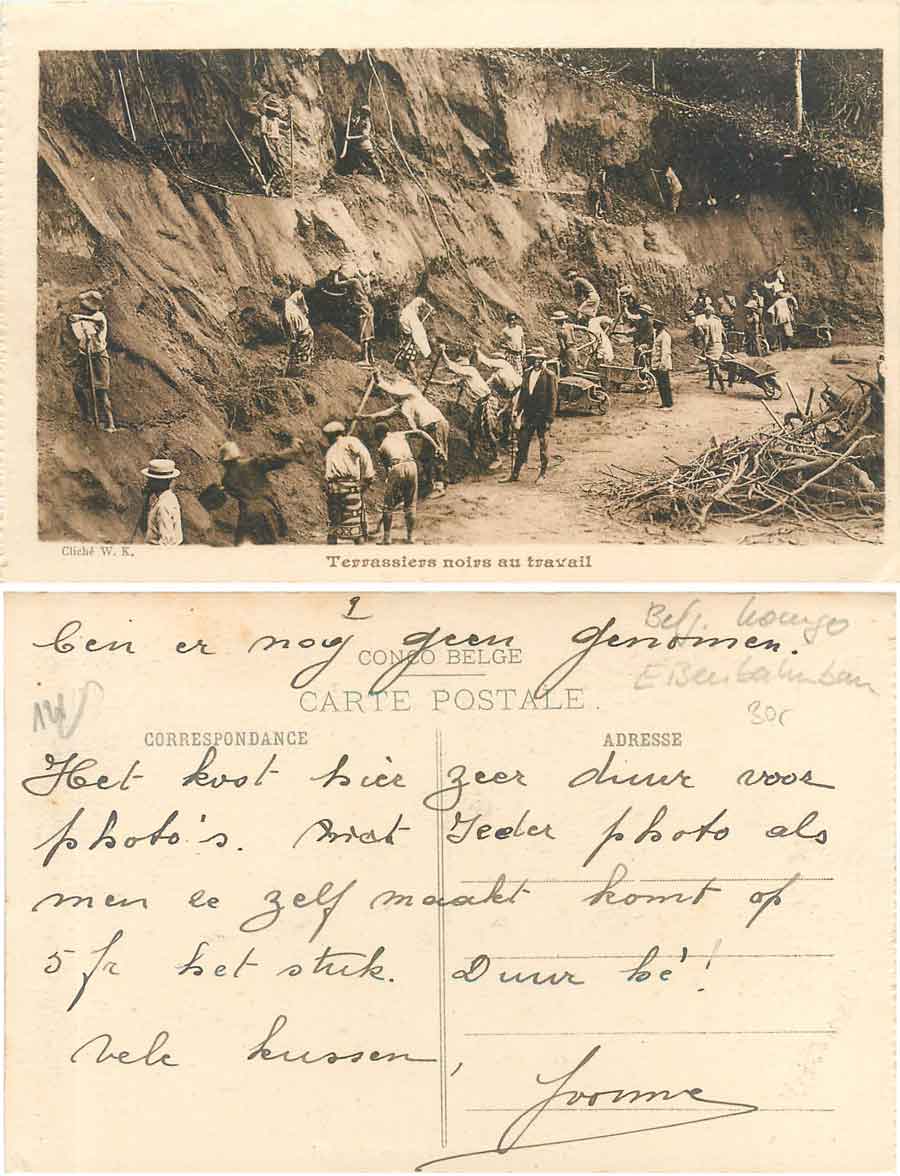 Cliché W. K.
Terrassiers noirs au travail
ben er nog geen genomen.
CONGO BELGE
CARTE POSTALE.
Belg. Kongo
Eisenbahnbau
30c
CORRESPONDANCE
ADRESSE
Het kost hier zeer duur voor
photo's. Ieder photo als
men ze zelf maakt komt op
5 fr het stuk. Duur hé!
Vele kussen,
Yvonne